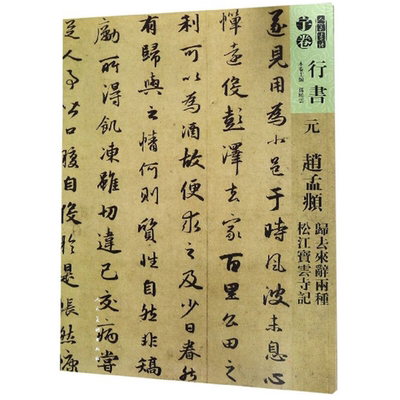 行書
元
趙孟頫
歸去來辭兩種
松江寶雲寺記
遂見用為小邑于時風波未息心
憚遠役彭澤去家百里公田之
利可以為酒故便求之及少日眷然
有歸與之情何則質性自然非矯
勵所得飢凍雖切違己交病嘗
人事皆口腹自役於是悵然慷